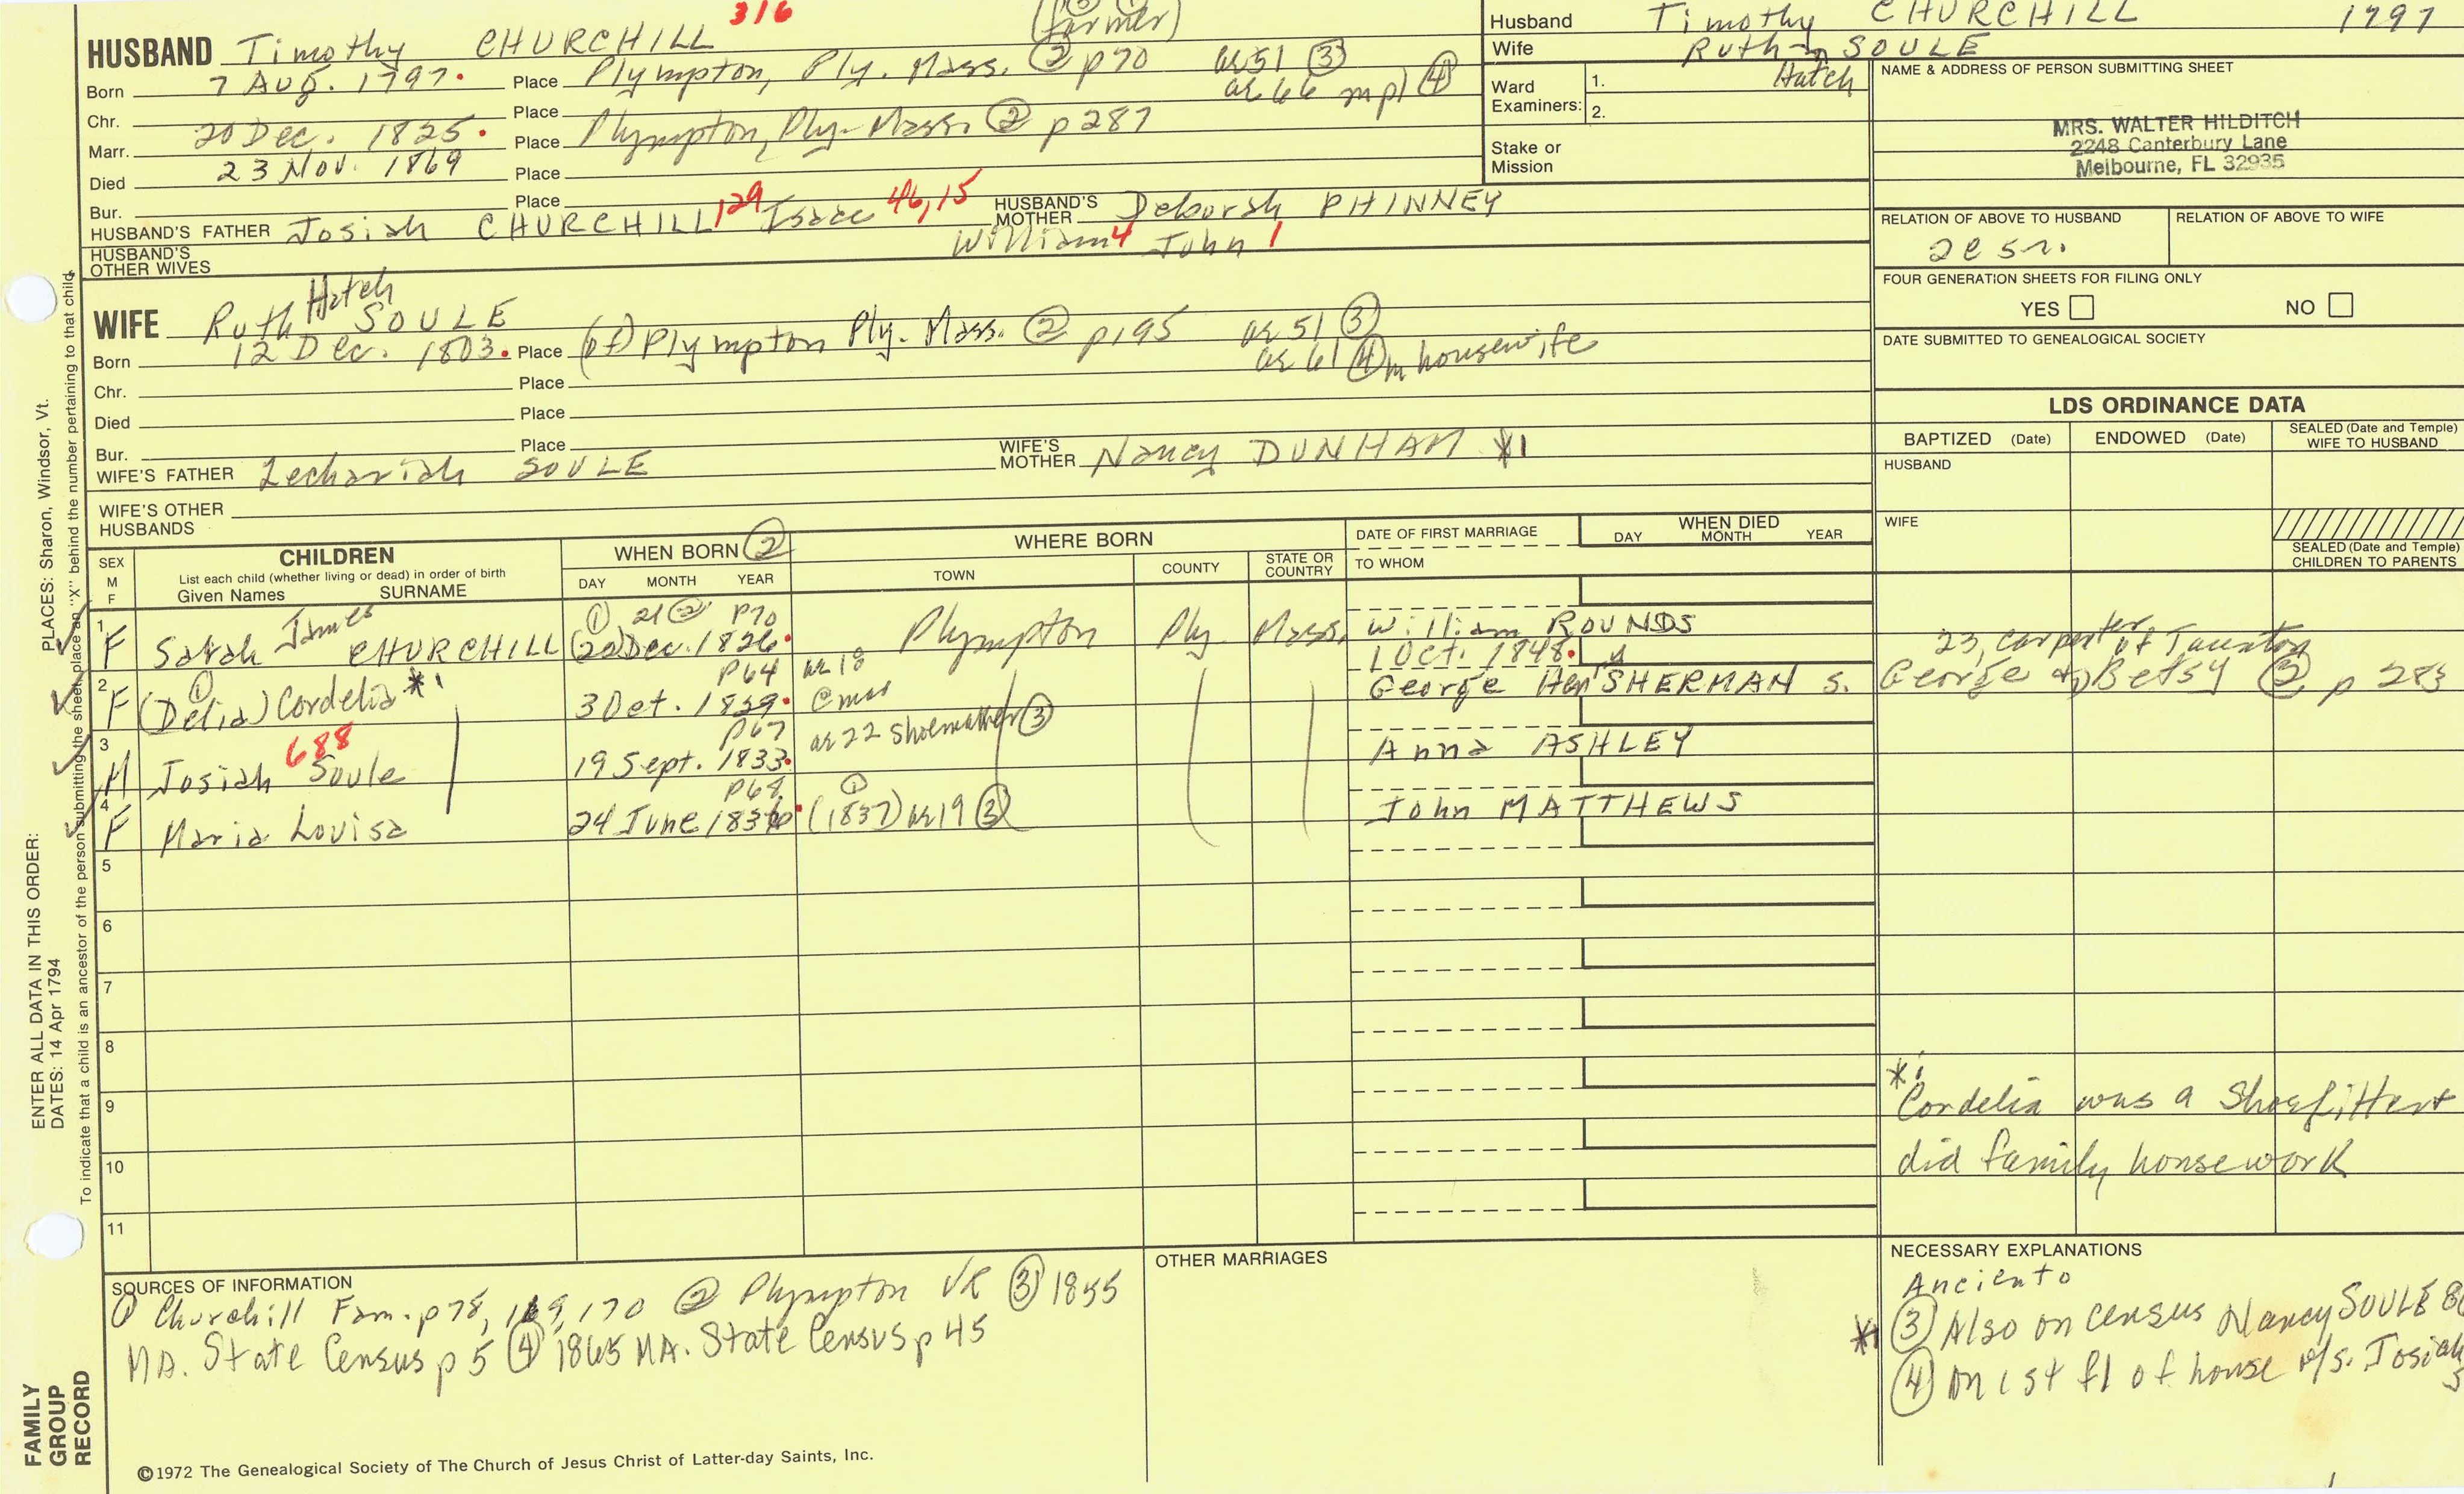 316
(farmer)
HUSBAND Timothy CHURCHILL
Born 7 AUG. 1797. Place Plympton, Ply. Mass. ② p70 ae 51 ③
ae 66 mpl ④
Chr. Place
Marr. 20 Dec. 1825. Place Plympton, Ply. Mass. ② p287
Died 23 Nov. 1869 Place
Bur. Place
HUSBAND'S FATHER Josiah CHURCHILL 129 Isaac 46,15 HUSBAND'S MOTHER Deborah PHINNEY
William 4 John 1
HUSBAND'S OTHER WIVES
Hatch
WIFE Ruth SOULE
Born 12 Dec. 1803. Place (of) Plympton Ply. Mass. ② p195 ae 51 ③
ae 61 ④ m housewife
Chr. Place
Died Place
Bur. Place
WIFE'S FATHER Zechariah SOULE WIFE'S MOTHER Nancy DUNHAM *1
WIFE'S OTHER HUSBANDS
Husband Timothy CHURCHILL 1797
Wife Ruth SOULE
Hatch
Ward Examiners: 1.
2.
Stake or Mission
NAME & ADDRESS OF PERSON SUBMITTING SHEET
MRS. WALTER HILDITCH
2248 Canterbury Lane
Melbourne, FL 32935
RELATION OF ABOVE TO HUSBAND RELATION OF ABOVE TO WIFE
FOUR GENERATION SHEETS FOR FILING ONLY
YES NO
DATE SUBMITTED TO GENEALOGICAL SOCIETY
LDS ORDINANCE DATA
BAPTIZED (Date) ENDOWED (Date) SEALED (Date and Temple) WIFE TO HUSBAND
HUSBAND
WIFE
SEALED (Date and Temple) CHILDREN TO PARENTS
SEX M F
CHILDREN
List each child (whether living or dead) in order of birth
Given Names SURNAME
WHEN BORN ②
DAY MONTH YEAR
WHERE BORN
TOWN COUNTY STATE OR COUNTRY
DATE OF FIRST MARRIAGE
TO WHOM
WHEN DIED
DAY MONTH YEAR
① 21 ② P70
1 F Sarah James CHURCHILL (20) Dec. 1826. Plympton Ply Mass. William ROUNDS
P64 ae 18 1 Oct. 1848. 23, carpenter of Taunton
2 F (Delia) ① Cordelia *1 3 Oct. 1829. George Hen SHERMAN s. George & Betsy ② p 283
P67 ae 22 Shoemaker ③
3 M Josiah Soule 688 19 Sept. 1833. Anna ASHLEY
P68 ①
4 F Maria Louisa 24 June 1836. (1837) ae 19 ③ John MATTHEWS
5
6
7
8
9
10
11
*1
Cordelia was a Shoefitter &
did family housework
SOURCES OF INFORMATION
① Churchill Fam. p78, 169, 170 ② Plympton VR ③ 1855
MA. State Census p 5 ④ 1865 MA. State Census p 45
OTHER MARRIAGES
NECESSARY EXPLANATIONS
*1 ③ Also on census Nancy SOULE
④ on 1st fl of house Josiah
©1972 The Genealogical Society of The Church of Jesus Christ of Latter-day Saints, Inc.
FAMILY GROUP RECORD
ENTER ALL DATA IN THIS ORDER:
DATES: 14 Apr 1794
PLACES: Sharon, Windsor, Vt.
To indicate that a child is an ancestor of the person submitting the sheet, place an "X" behind the number pertaining to that child.